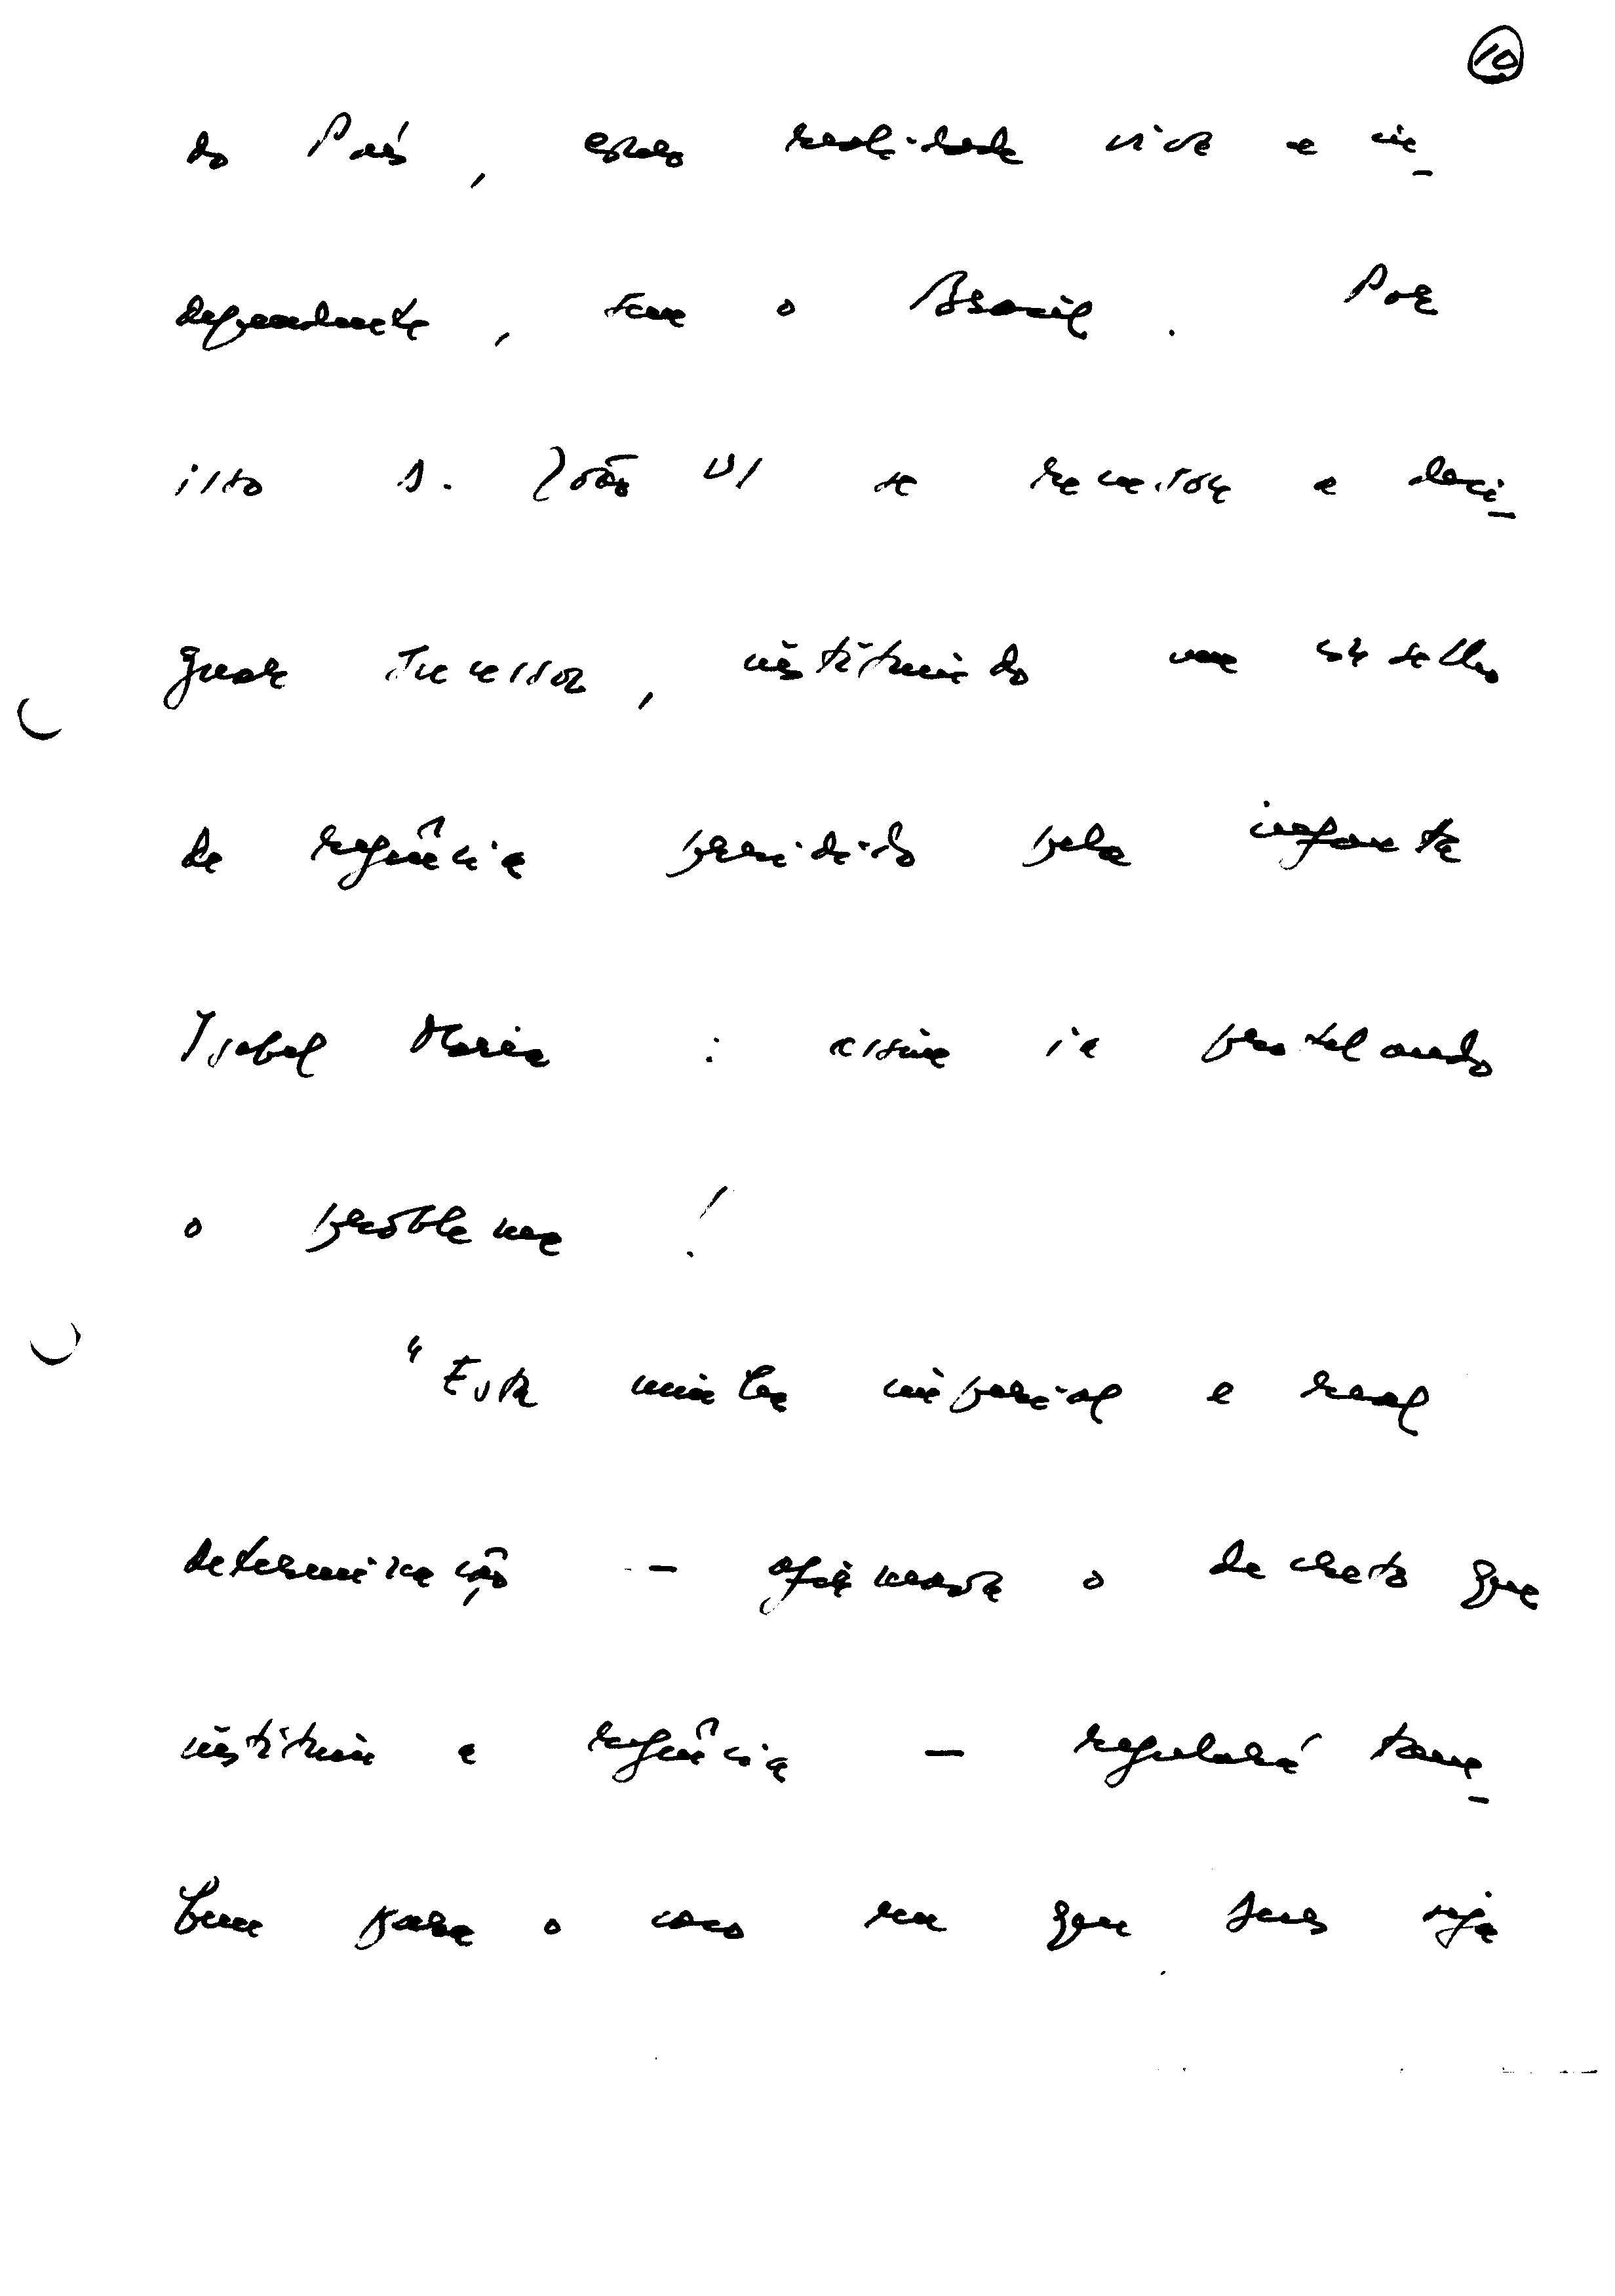 10
do País, essa realidade viva e in_
dependente, sem o Brasil. Por
isso D. João VI se recusou a desi_
gnar sucessor, instituindo um conselho
de regência presidido pela infanta
Isabel Maria : assim ia protelando
o problema !
"Esta minha imperial e real
determinação — afirmava o decreto que
instituiu a regência — regulará tam_
bem para o caso em que Deus seja